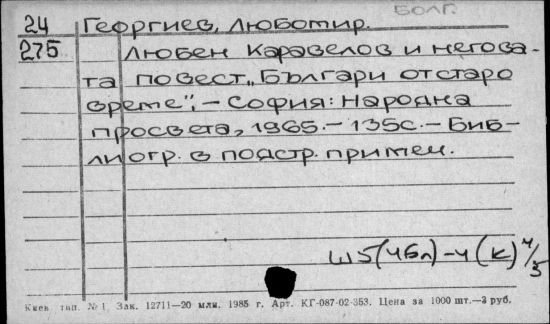 БОЛГ.
24 Георгиев, Любомир.
275 Любен Каравелов и негова-
та повест „Българи от старо
време“; – София: Народна
просвета, 1965. – 135с. – Биб-
лиогр. в подстр. примеч.
Ш5(4Бл)-4(К) 4/3
Киев. тип. № 1. Зак. 12711—20 млн. 1985 г. Арт. КГ-087-02-353. Цена за 1000 шт.—3 руб.